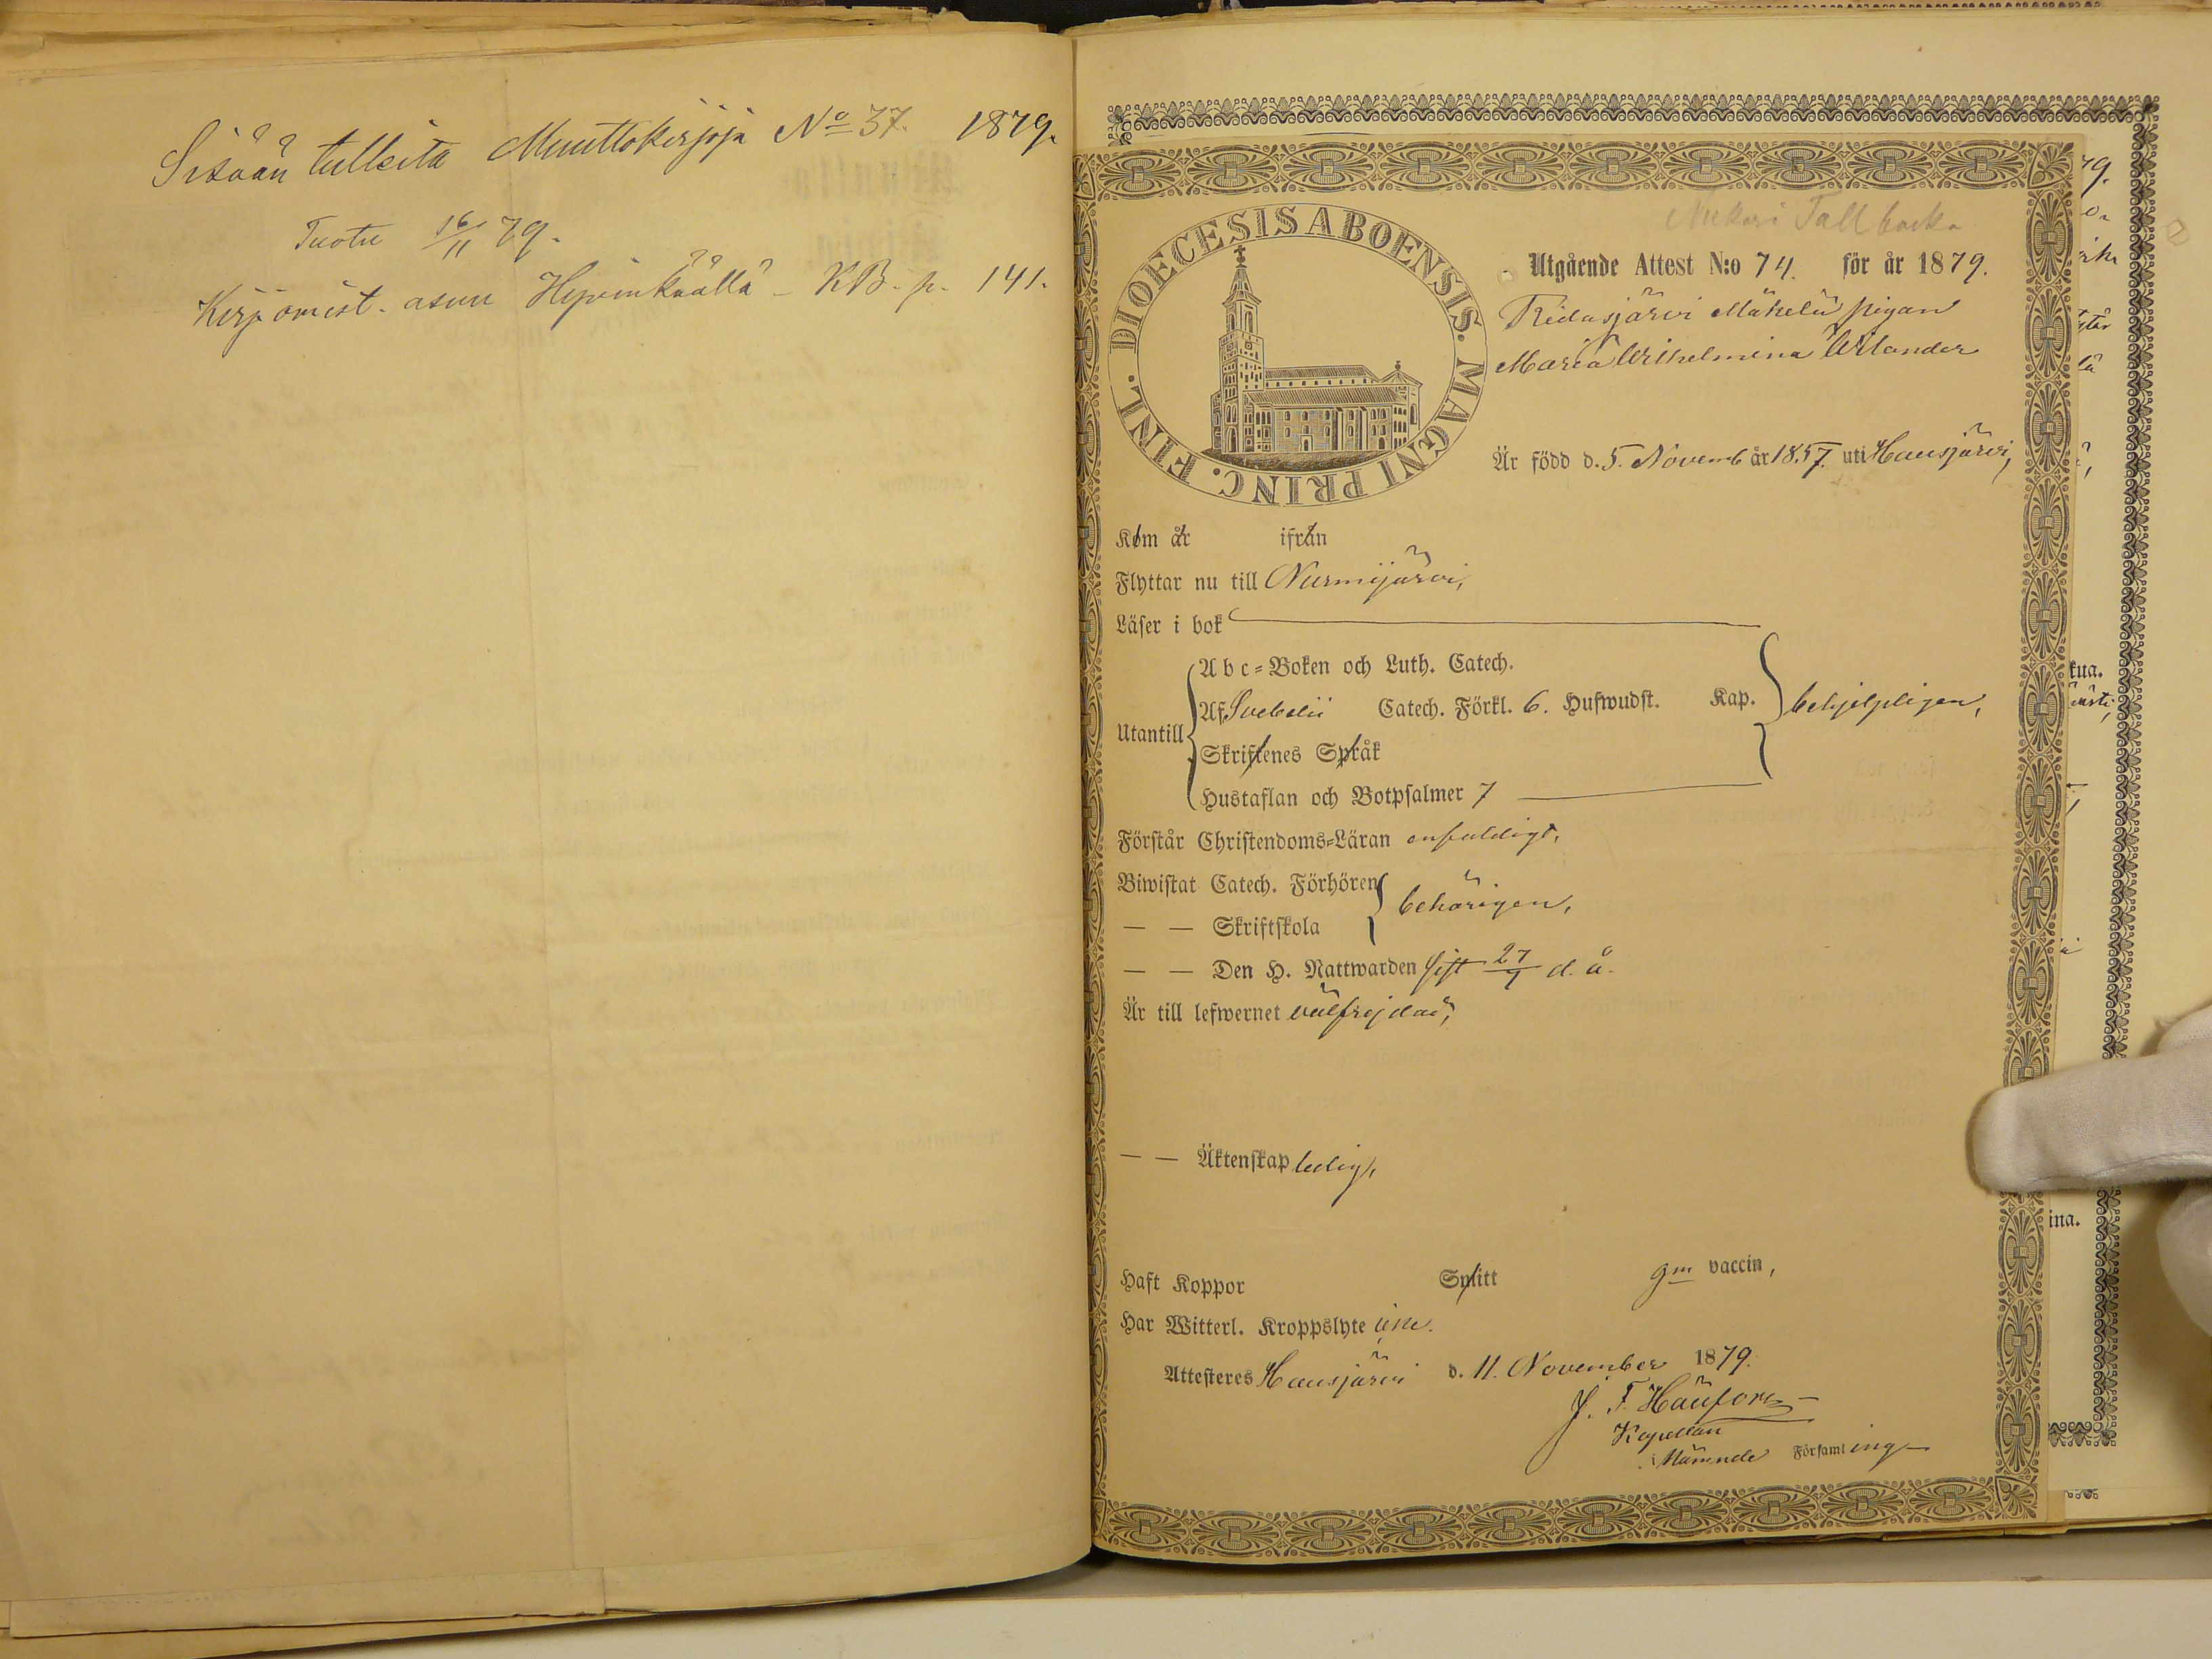 Sisään tulleita Muuttokirjoja No 37. 1879.
Tuotu 16/11 79.
Kirj. omist. asuu Hyvinkäällä - KB. p. 141.
DIOECESIS ABOENSIS. MAGNI PRINC. FINL.
Nukari Tallbacka
Utgående Attest N:o 74. för år 1879.
Ridasjärvi Mäkelä pigan
Maria Wilhelmina Wilander
Är född d. 5. Novemb år 1857. uti Hausjärvi,
Kom år ifrån
Flyttar nu till Nurmijärvi,
Läser i bok
Utantill
A b c-Boken och Luth. Catech.
Af Svebelii Catech. Förkl. 6. Hufwudst. Kap. behjelpligen,
Skriftenes Språk
Hustaflan och Botpsalmer 7
Förstår Christendoms-Läran enfaldigt,
Biwistat Catech. Förhören behörigen,
— — Skriftskola
— — Den H. Nattwarden sist 27/7 d. å.
Är till lefwernet välfrejdad,
— — Äktenskap ledig,
Haft Koppor Splitt gm vaccin,
Har Witterl. Kroppslyte icke.
Attesteres Hausjärvi d. 11. November 1879.
J. F.
Kapellan
i Nämnde Församling